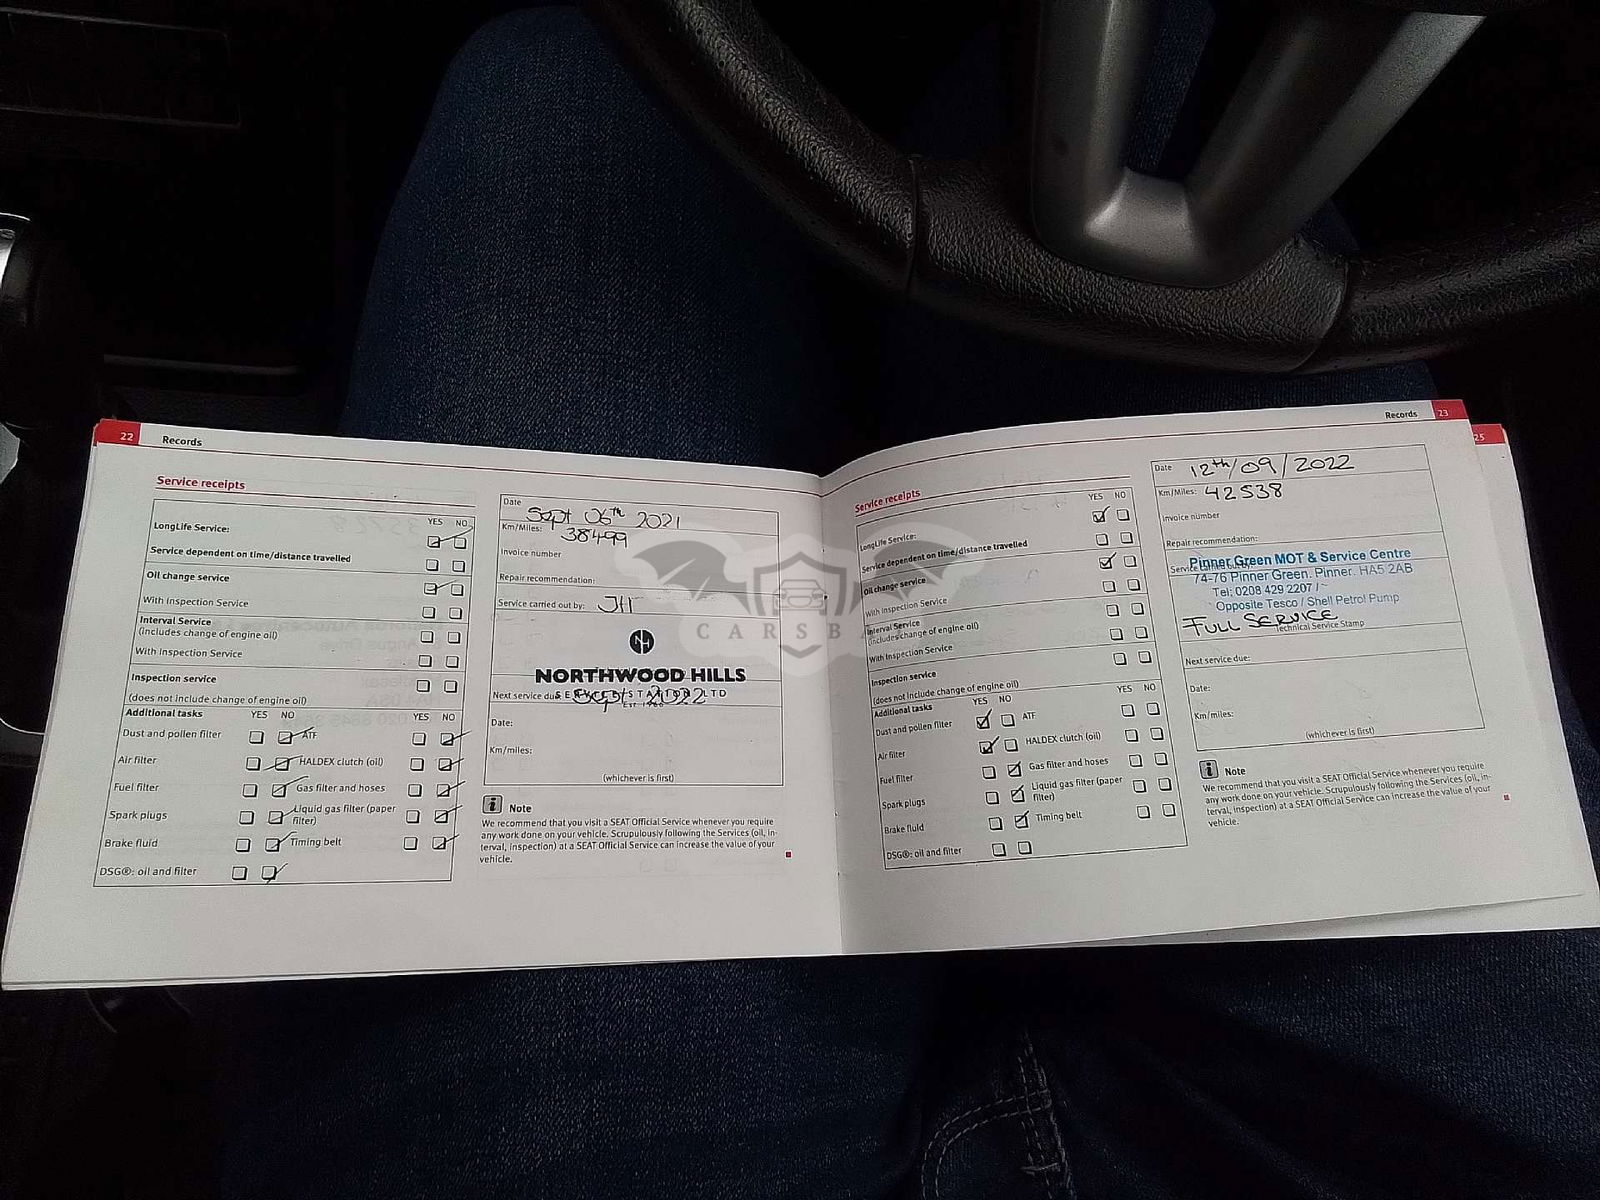 22 Records
Service receipts
YES NO
LongLife Service:
Service dependent on time/distance travelled
Oil change service
With Inspection Service
Interval Service
(includes change of engine oil)
With Inspection Service
Inspection service
(does not include change of engine oil)
Additional tasks YES NO YES NO
Dust and pollen filter ATF
Air filter HALDEX clutch (oil)
Fuel filter Gas filter and hoses
Spark plugs Liquid gas filter (paper
filter)
Brake fluid Timing belt
DSG®: oil and filter
Date Sept 06th 2021
Km/Miles: 38499
Invoice number
Repair recommendation:
Service carried out by: JH
NH
NORTHWOOD HILLS
SERVICE STATION LTD
Next service due: Sept 2022
Date:
Km/miles:
(whichever is first)
i Note
We recommend that you visit a SEAT Official Service whenever you require
any work done on your vehicle. Scrupulously following the Services (oil, in-
terval, inspection) at a SEAT Official Service can increase the value of your
vehicle.
Records 23
25
Service receipts
YES NO
LongLife Service:
Service dependent on time/distance travelled
Oil change service
With Inspection Service
Interval Service
(includes change of engine oil)
With Inspection Service
Inspection service
(does not include change of engine oil)
Additional tasks YES NO YES NO
Dust and pollen filter ATF
Air filter HALDEX clutch (oil)
Fuel filter Gas filter and hoses
Spark plugs Liquid gas filter (paper
filter)
Brake fluid Timing belt
DSG®: oil and filter
Date 12th/09/2022
Km/Miles: 42538
Invoice number
Repair recommendation:
Pinner Green MOT & Service Centre
74-76 Pinner Green. Pinner. HA5 2AB
Tel: 0208 429 2207 /
Opposite Tesco / Shell Petrol Pump
FULL SERVICE
Technical Service Stamp
Next service due:
Date:
Km/miles:
(whichever is first)
i Note
We recommend that you visit a SEAT Official Service whenever you require
any work done on your vehicle. Scrupulously following the Services (oil, in-
terval, inspection) at a SEAT Official Service can increase the value of your
vehicle.